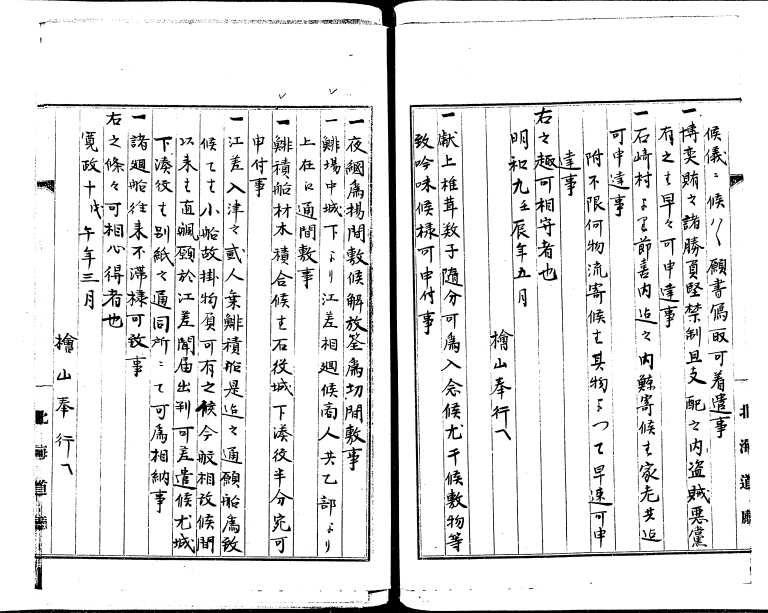 候儀ニ候ハヽ願書為取可着遣事
一博奕賭之諸勝負堅禁制且支配之内盗賊悪党
有之ハ早々可申達事
一石崎村ゟ乙部喜内迄之内鯨寄候ハ家老共迄
可申達事
附不限何物流寄候ハ其物ゟつて早速可申
達事
右之趣可相守者也
明和九壬辰年五月
檜山奉行へ
一献上椎茸数子随分可為入念候尤干候敷物等
致吟味候様可申付事
北海道廳
一夜網為揚間敷候解放筌為切間敷事
一鯡場中城下より江差相廻候商人共乙部より
上在に通間敷事
一鯡積船材木積合候ハ石役城下湊役半分宛可
申付事
一江差入津之或人乗鯡積船是迄之通願船為致
候ても小船故掛物負可有之候今般相改候間
以来ハ直颿願於江差聞届出判可差遣候尤城
下湊役ハ別紙之通同所ニて可為相納事
一諸廻船往来不滞様可致事
右之條々可相心得者也
寛政十戊午年三月
檜山奉行へ
北海道廳